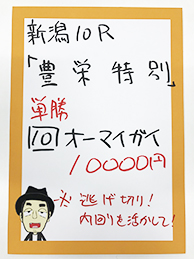 新潟10R
「豊栄特別」
単勝
10 オーマイガイ
10000円
※逃げ切り!
内回りを活かして!